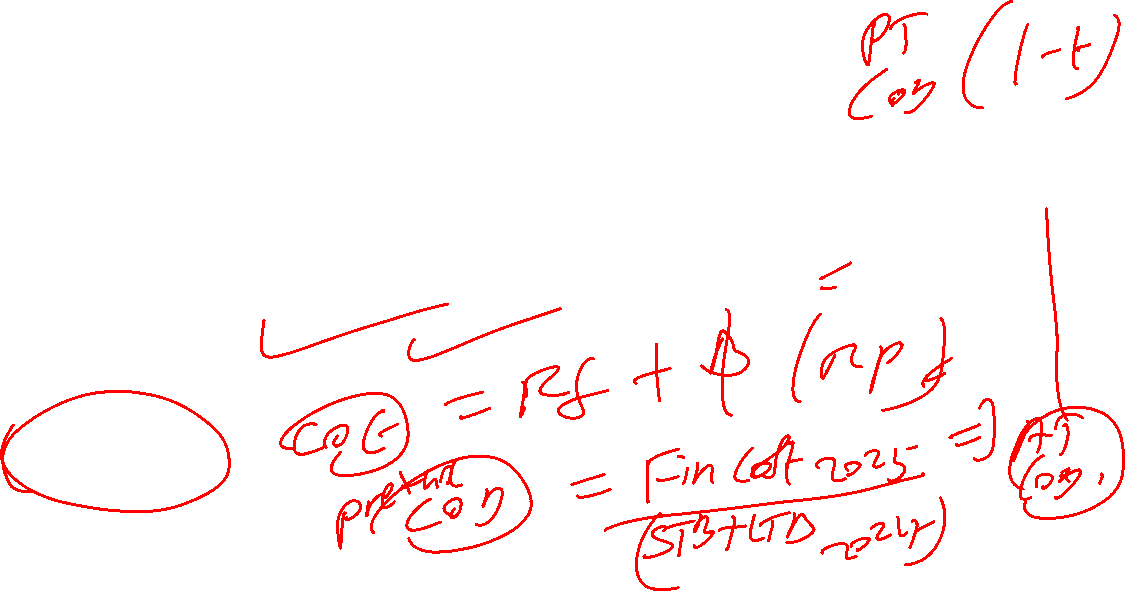 PT
COD (1-t)
COE = Rf + β (RP)
pretax
COD = Fin Cost 2025 =>
(STB+LTD 2024)